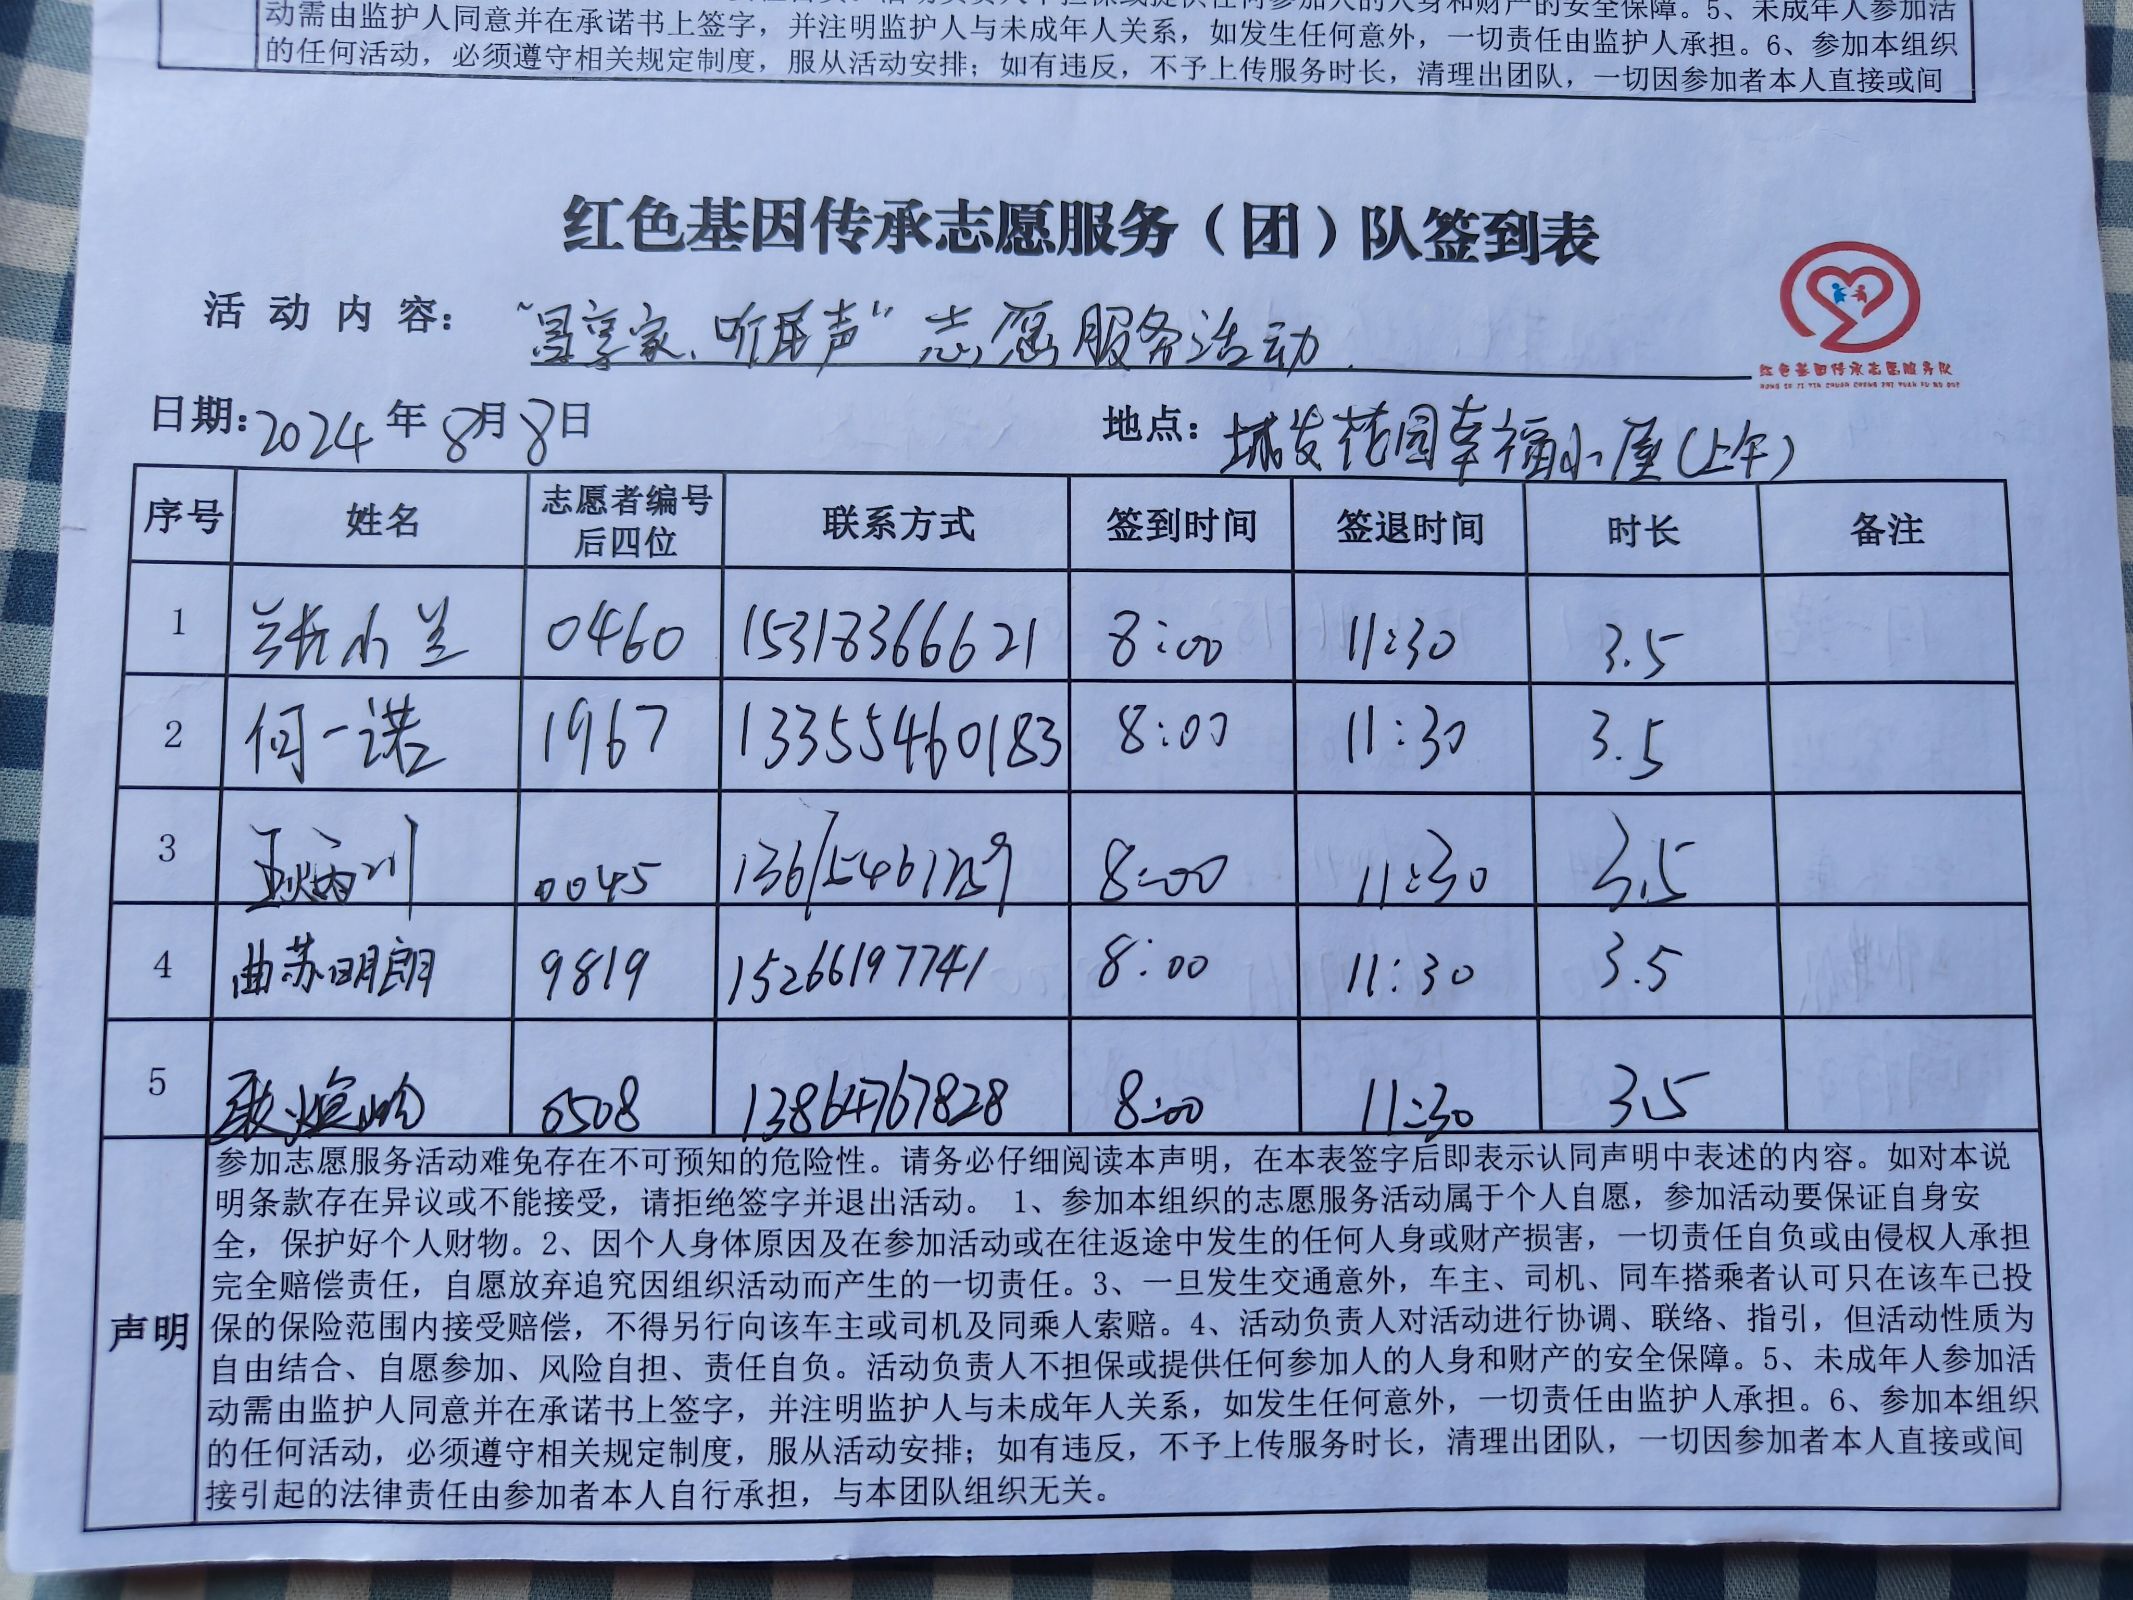 动需由监护人同意并在承诺书上签字，并注明监护人与未成年人关系，如发生任何意外，一切责任由监护人承担。6、参加本组织
的任何活动，必须遵守相关规定制度，服从活动安排；如有违反，不予上传服务时长，清理出团队，一切因参加者本人直接或间
红色基因传承志愿服务（团）队签到表
活动内容：家、听民声”志愿服务活动
红色基因传承志愿服务队
日期：2024年8月8日 地点：城发花园幸福小屋（上午）
序号 姓名 志愿者编号后四位 联系方式 签到时间 签退时间 时长 备注
1 兰 0460 15318366621 8:00 11:30 3.5
2 何一诺 1967 13355460183 8:00 11:30 3.5
3 王炳川 0045 8:00 11:30 3.5
4 曲苏明朗 9819 15266197741 8:00 11:30 3.5
5 0508 13864767828 8:00 11:30 3.5
声明
参加志愿服务活动难免存在不可预知的危险性。请务必仔细阅读本声明，在本表签字后即表示认同声明中表述的内容。如对本说
明条款存在异议或不能接受，请拒绝签字并退出活动。 1、参加本组织的志愿服务活动属于个人自愿，参加活动要保证自身安
全，保护好个人财物。2、因个人身体原因及在参加活动或在往返途中发生的任何人身或财产损害，一切责任自负或由侵权人承担
完全赔偿责任，自愿放弃追究因组织活动而产生的一切责任。3、一旦发生交通意外，车主、司机、同车搭乘者认可只在该车已投
保的保险范围内接受赔偿，不得另行向该车主或司机及同乘人索赔。4、活动负责人对活动进行协调、联络、指引，但活动性质为
自由结合、自愿参加、风险自担、责任自负。活动负责人不担保或提供任何参加人的人身和财产的安全保障。5、未成年人参加活
动需由监护人同意并在承诺书上签字，并注明监护人与未成年人关系，如发生任何意外，一切责任由监护人承担。6、参加本组织
的任何活动，必须遵守相关规定制度，服从活动安排；如有违反，不予上传服务时长，清理出团队，一切因参加者本人直接或间
接引起的法律责任由参加者本人自行承担，与本团队组织无关。